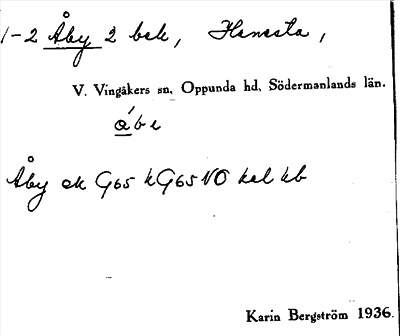 1-2 Åby 2 bek, Hanesta,
V. Vingåkers sn, Oppunda hd, Södermanlands län.
Åby ek G65 kG65 NO kel kb
Karin Bergström 1936.